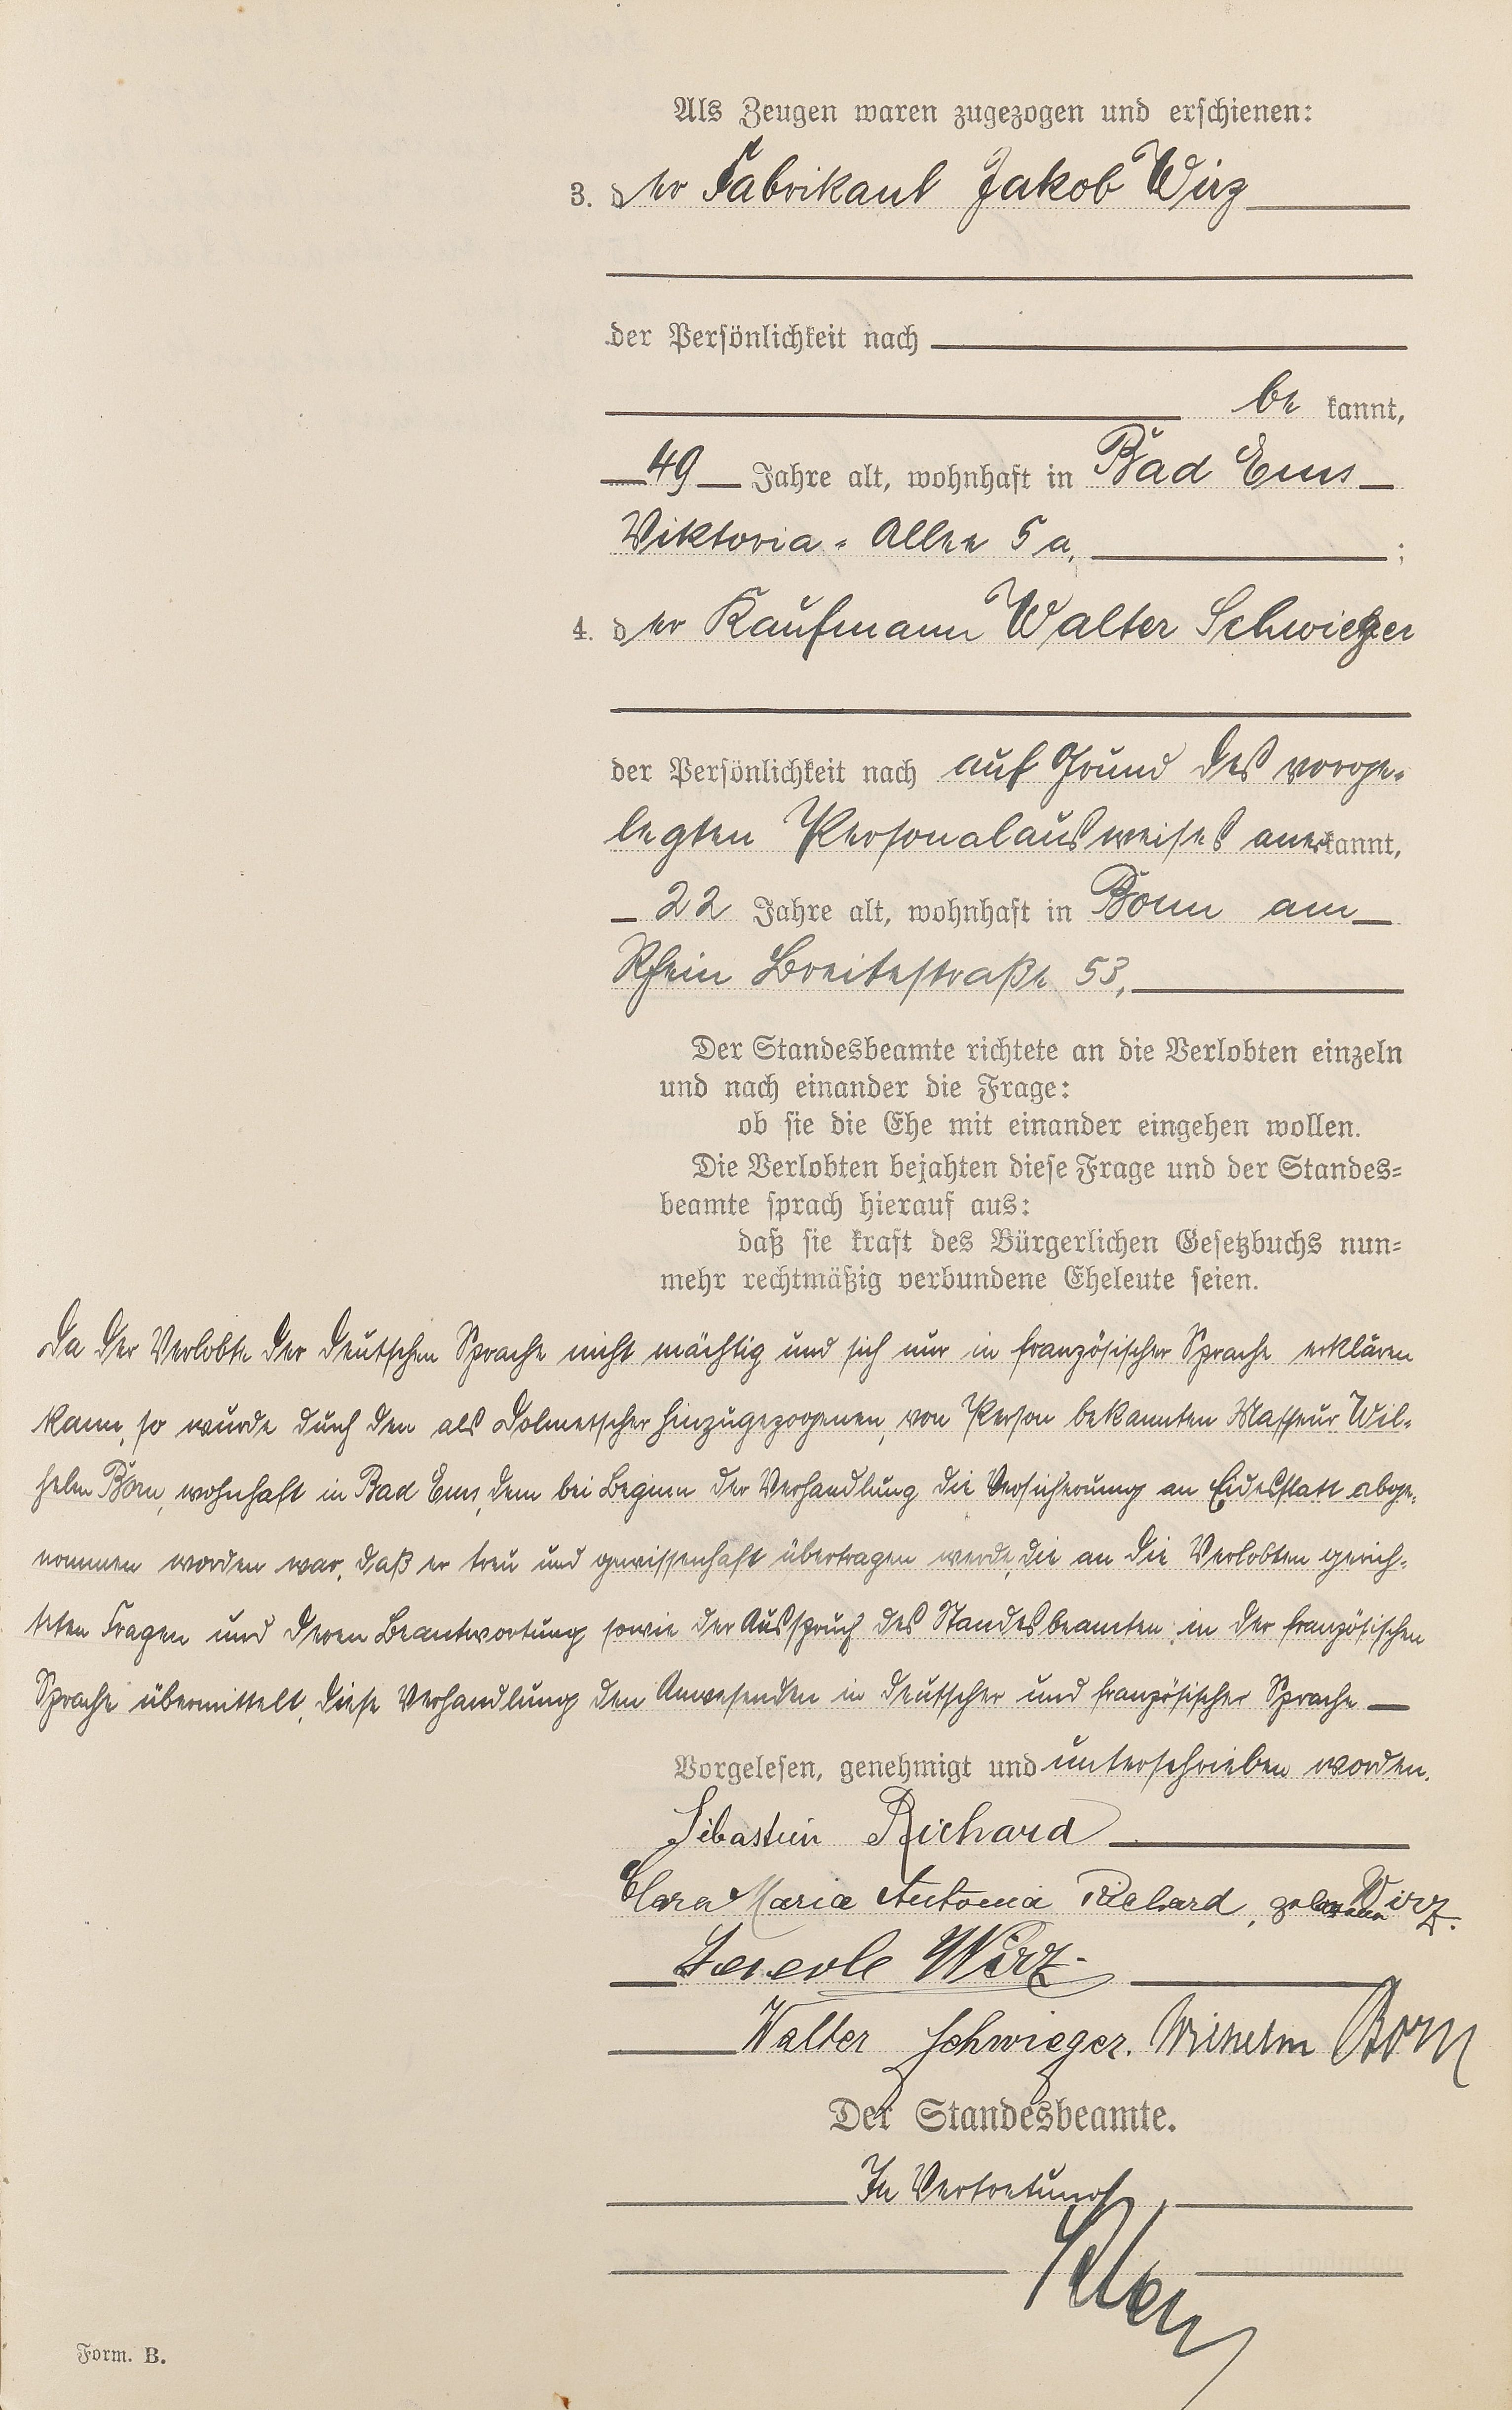 Als Zeugen waren zugezogen und erschienen:
3. der Fabrikant Jakob Wirz
der Persönlichkeit nach
be kannt,
49 Jahre alt, wohnhaft in Bad Ems
Viktoria-Allee 5a, ;
4. der Kaufmann Walter Schwieger
der Persönlichkeit nach auf Grund des vorge-
legten Personalausweises anerkannt,
22 Jahre alt, wohnhaft in Bonn am
Rhein Breitestraße 53,
Der Standesbeamte richtete an die Verlobten einzeln
und nach einander die Frage:
ob sie die Ehe mit einander eingehen wollen.
Die Verlobten bejahten diese Frage und der Standes-
beamte sprach hierauf aus:
daß sie kraft des Bürgerlichen Gesetzbuchs nun-
mehr rechtmäßig verbundene Eheleute seien.
Da der Verlobte der deutschen Sprache nicht mächtig und sich nur in französischer Sprache erklären
kann, so wurde durch den als Dolmetscher hinzugezogenen, von Person bekannten Masseur Wil-
helm Born, wohnhaft in Bad Ems, dem bei Beginn der Verhandlung die Versicherung an Eidesstatt abge-
nommen worden war, daß er treu und gewissenhaft übertragen werde, die an die Verlobten gerich-
teten Fragen und deren Beantwortung sowie der Ausspruch des Standesbeamten in der französischen
Sprache übermittelt, diese Verhandlung den Anwesenden in deutscher und französischer Sprache
Vorgelesen, genehmigt und unterschrieben worden.
Sébastien Richard
Clara Maria Antonia Richard, geborene Wirz.
Wirz
Walter Schwieger. Wilhelm Born
Der Standesbeamte.
In Vertretung
Form. B.